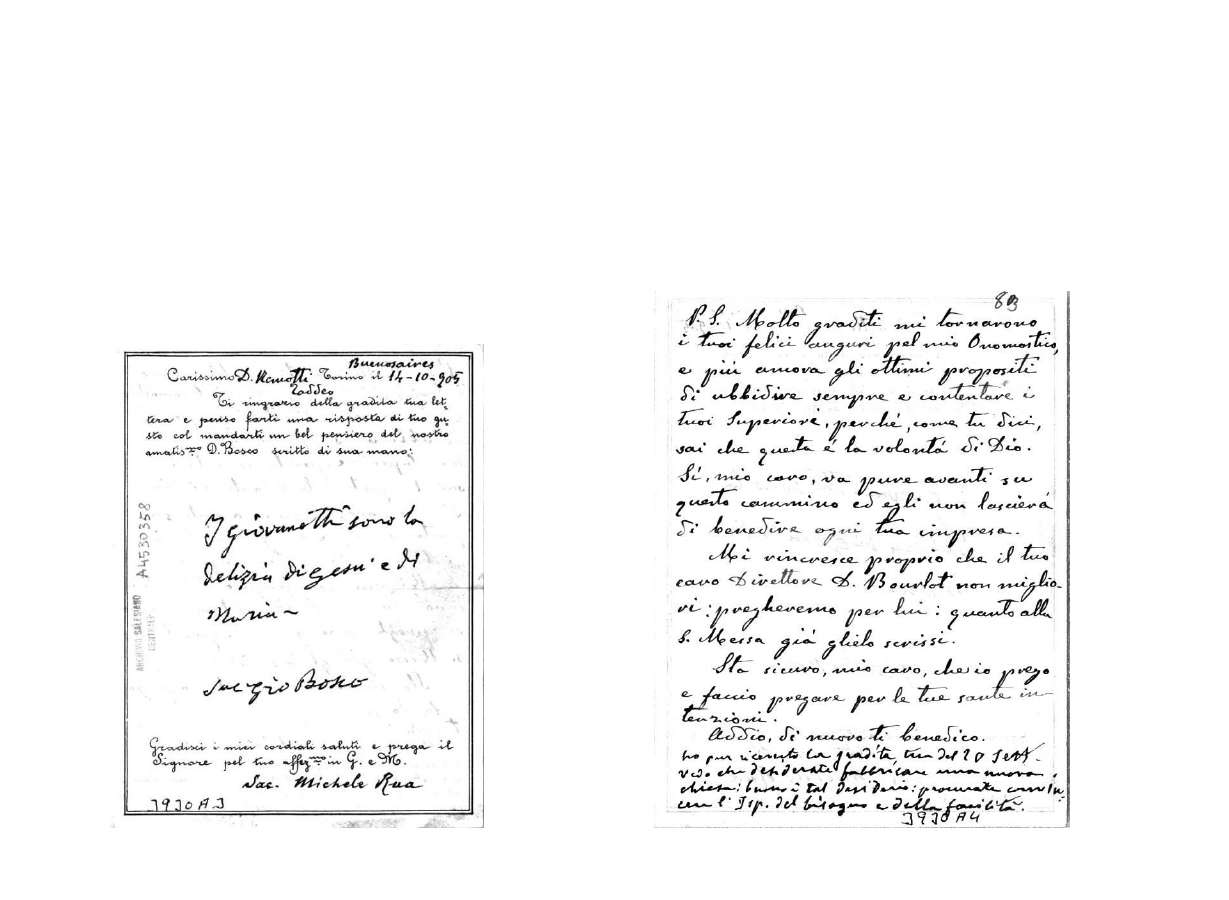 Buenosaires
Carissimo D. Torino il 14-10-905
Taddeo
Ti ringrazio della gradita tua let-
tera e penso farti una risposta di tuo gu-
sto col mandarti un bel pensiero del nostro
amatis.mo D. Bosco scritto di sua mano:
I giovanetti sono la
delizia di Gesù e di
Maria
Sac Gio Bosco
Gradisci i miei cordiali saluti e prega il
Signore pel tuo affez.mo in G. e M.
Sac. Michele Rua
3930 A3
A4530358
ARCHIVIO SALESIANO
CENTRALE
83
P. S. Molto graditi mi tornarono
i tuoi felici auguri pel mio Onomastico,
e più ancora gli ottimi propositi
di ubbidire sempre e contentare i
tuoi Superiori, perché, come tu dici,
sai che questa é la volontá di Dio.
Sí, mio caro, va pure avanti su
questo cammino ed egli non lascierá
di benedire ogni tua impresa.
Mi rincresce proprio che il tuo
caro Direttore D. Bourlot non miglio-
ri: pregheremo per lui: quanto alla
S. Messa giá glielo scrissi.
Sta sicuro, mio caro, che io prego
e faccio pregare per le tue sante in-
tenzioni.
Addio, di nuovo ti benedico.
ho pur ricevuto la gradita tua del 20 Sett.
vedo che desiderate fabbricare una nuova
chiesa: buono è tal desiderio: procurate
con l'Isp. del bisogno e della facilità.
3930 A4